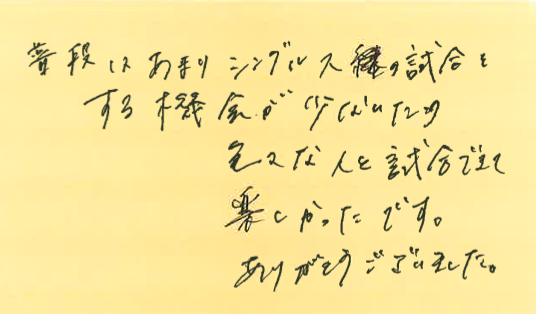 普段はあまりシングルスの試合を
する機会が少ないため
色々な人と試合できて
楽しかったです。
ありがとうございました。